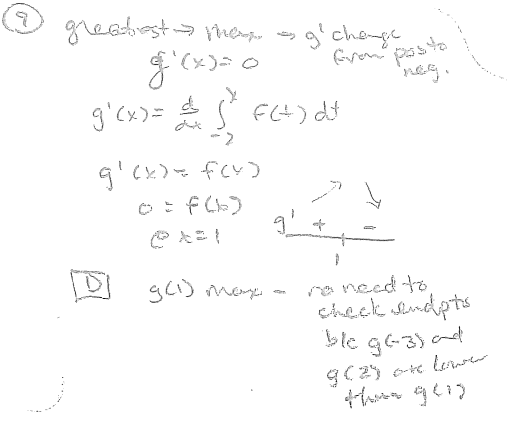 9 greatest → max → g' change
from pos to
neg.
g'(x)=0
g'(x)= d/dx ∫_{-2}^{x} f(t) dt
g'(x) = f(x)
0 = f(x)
@ x=1
g' + -
1
D g(1) max - no need to
check endpts
b/c g(-3) and
g(2) are lower
than g(1)